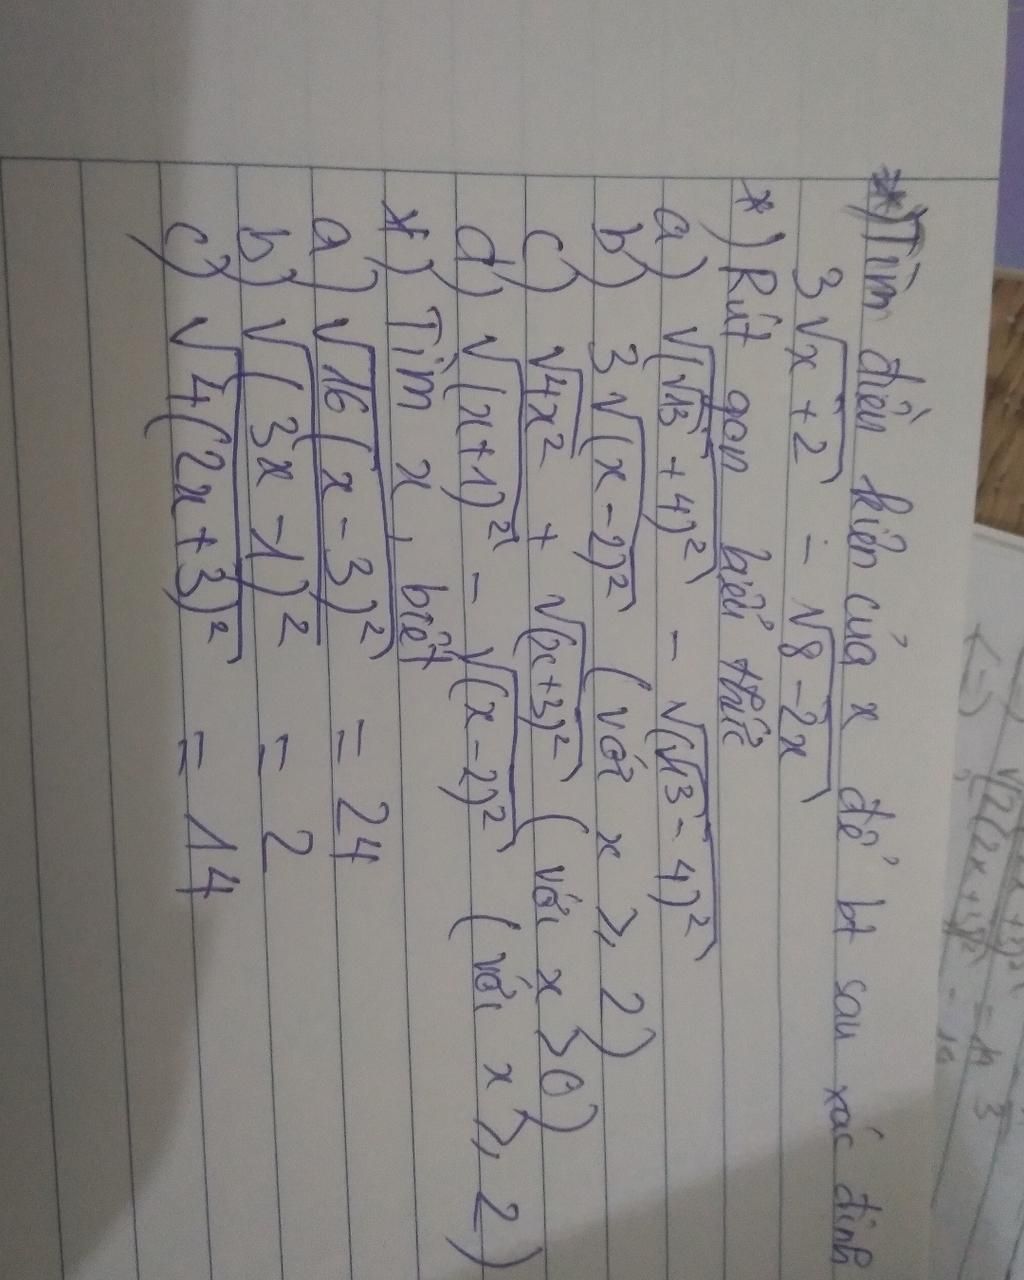 *) Tìm điều kiện của x để bt sau xác định
3√(x+2) - √(8-2x)
*) Rút gọn biểu thức
a) √((√13 + 4)²) - √((√13 - 4)²)
b) 3√((x-2)²) (với x ≥ 2)
c) √(4x²) + √((x+3)²) (với x ≥ 0)
d) √((x+1)²) - √((x-2)²) (với x ≥ 2)
*) Tìm x, biết
a) √(16(x-3)²) = 24
b) √((3x-1)²) = 2
c) √(4(2x+3)²) = 14